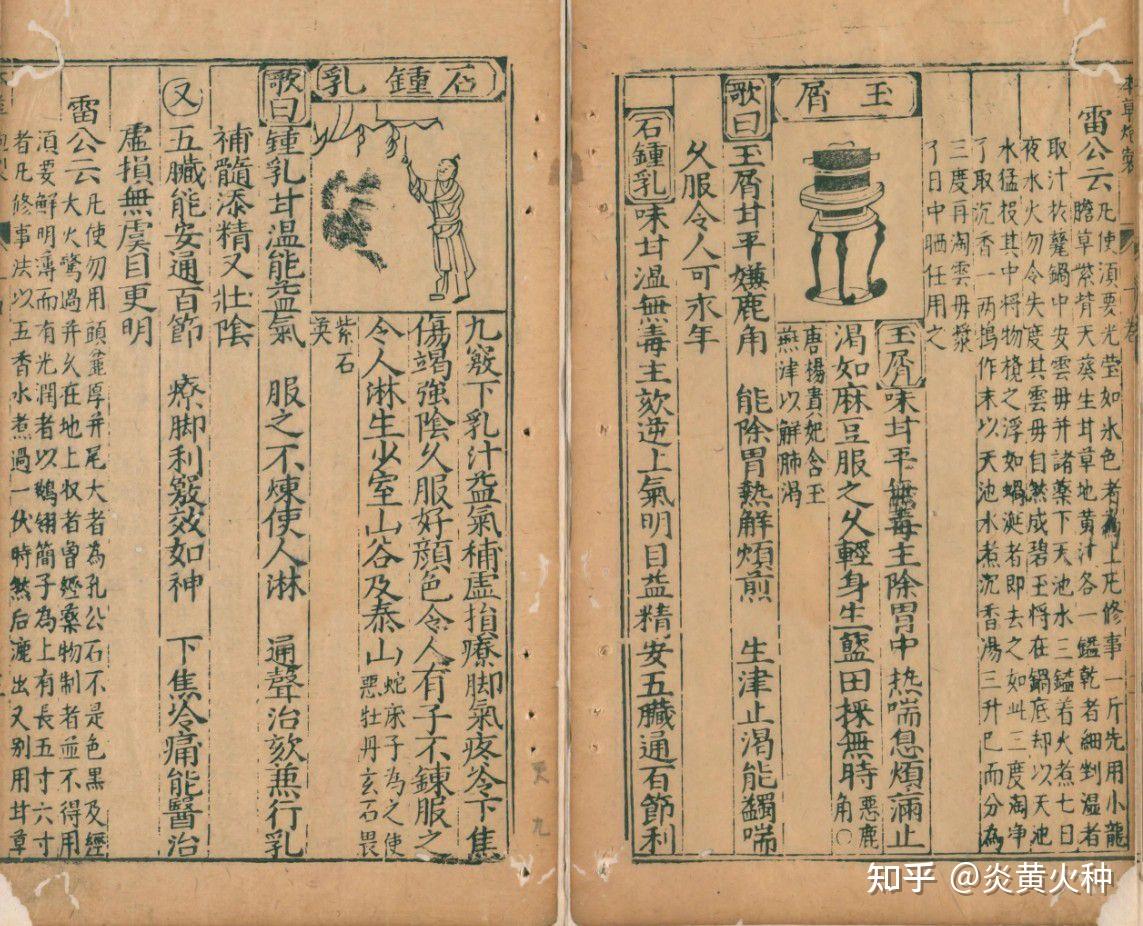 本草炮製
卷
雷公云凡使須要光瑩如水色者為上凡修事一斤先用小龍
膽草紫背天葵生甘草地黃汁各一鎰乾者細剉濕者
取汁於甆鍋中安雲毋并諸藥下天池水三鎰着火煮七日
夜水火勿令失度其雲毋自然成碧玉將在鍋底却以天池
水猛投其中將物攪之浮如蝸涎者即去之如此三度淘淨
了取沉香一两搗作末以天池水煮沉香湯三升巳而分為
三度再淘雲毋漿
了日中晒任用之
玉屑
玉屑味甘平無毒主除胃中热喘息煩滿止
渴如麻豆服之乆輕身生藍田採無時惡鹿角〇
唐楊貴妃含玉
燕津以解肺渴
歌曰玉屑甘平嫌鹿角 能除胃熱解煩煎 生津止渴能蠲喘
乆服令人可永年
石鍾乳味甘温無毒主欬逆上氣明目益精安五臟通百節利
石鍾乳
九竅下乳汁益氣補虛損療脚氣疼冷下焦
傷竭強陰久服好顔色令人有子不鍊服之
令人淋生少室山谷及泰山蛇床子為之使惡牡丹玄石畏
紫石
英
歌曰鍾乳甘温能益氣 服之不煉使人淋 通聲治欬兼行乳
補髓添精又壯陰
又五臟能安通百節 療脚利竅效如神 下焦冷痛能醫治
虛損無虞目更明
雷公云凡使勿用頭麄厚并尾大者為孔公石不是色黑及經
大火驚過并乆在地上收者曽經藥物制者並不得用
須要鮮明薄而有光潤者以鵝翎筒子為上有長五寸六寸
者凡修事法以五香水煮過一伏時然后漉出又别用甘草
天九
知乎 @炎黄火种